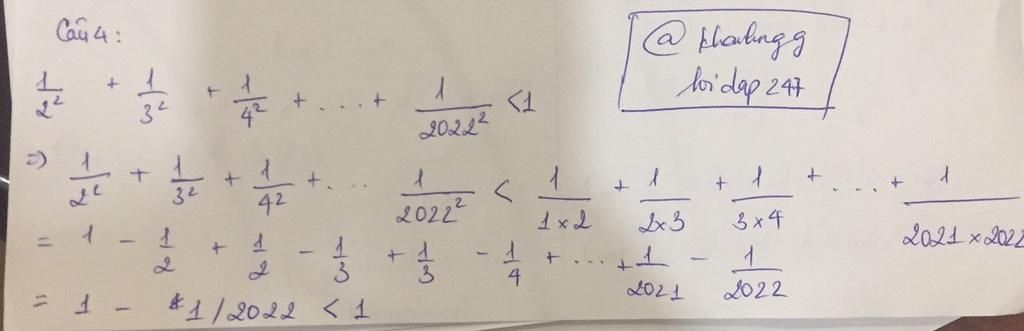 Câu 4:
@ khanhngg
hoidap247
1/2² + 1/3² + 1/4² + ... + 1/2022² < 1
=> 1/2² + 1/3² + 1/4² + ... 1/2022² < 1/1×2 + 1/2×3 + 1/3×4 + ... + 1/2021×2022
= 1 - 1/2 + 1/2 - 1/3 + 1/3 - 1/4 + ... + 1/2021 - 1/2022
= 1 - 1/2022 < 1